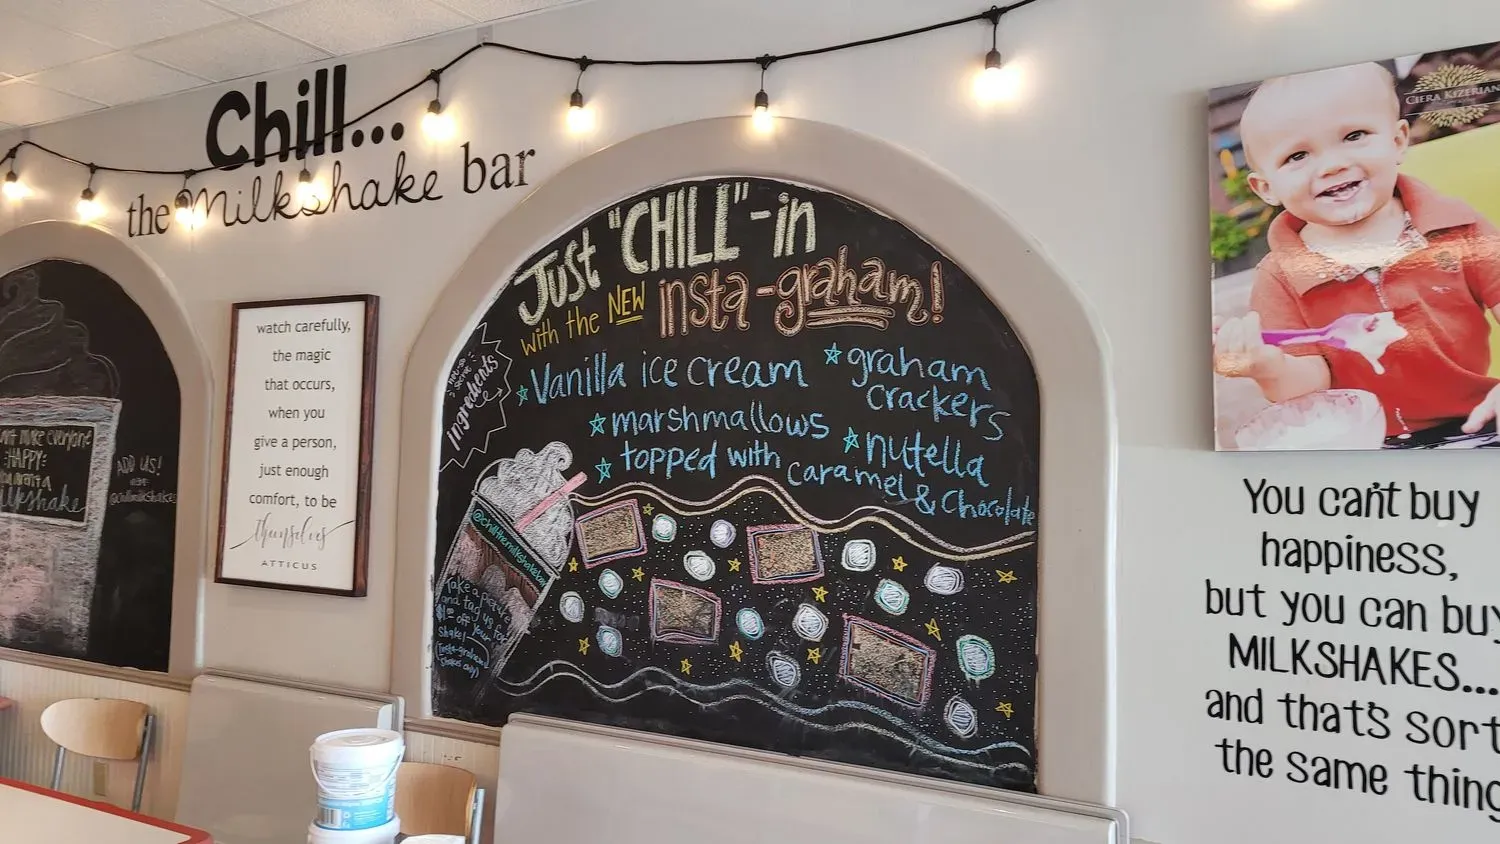 Chill...
the Milkshake bar
watch carefully,
the magic
that occurs,
when you
give a person,
just enough
comfort, to be
themselves
ATTICUS
make everyone
HAPPY
ADD US!
Just "CHILL"-in
with the NEW insta-graham!
ingredients
☆ Vanilla ice cream
☆ graham
crackers
☆ marshmallows
☆ nutella
☆ topped with
caramel & Chocolate
@chillthemilkshakebar
Take a picture
and tag us for
$1.00 off your
shake!
(insta-graham
shakes only)
CIERA KIZERIAN
You can't buy
happiness,
but you can buy
MILKSHAKES...
and that's sort
the same thing